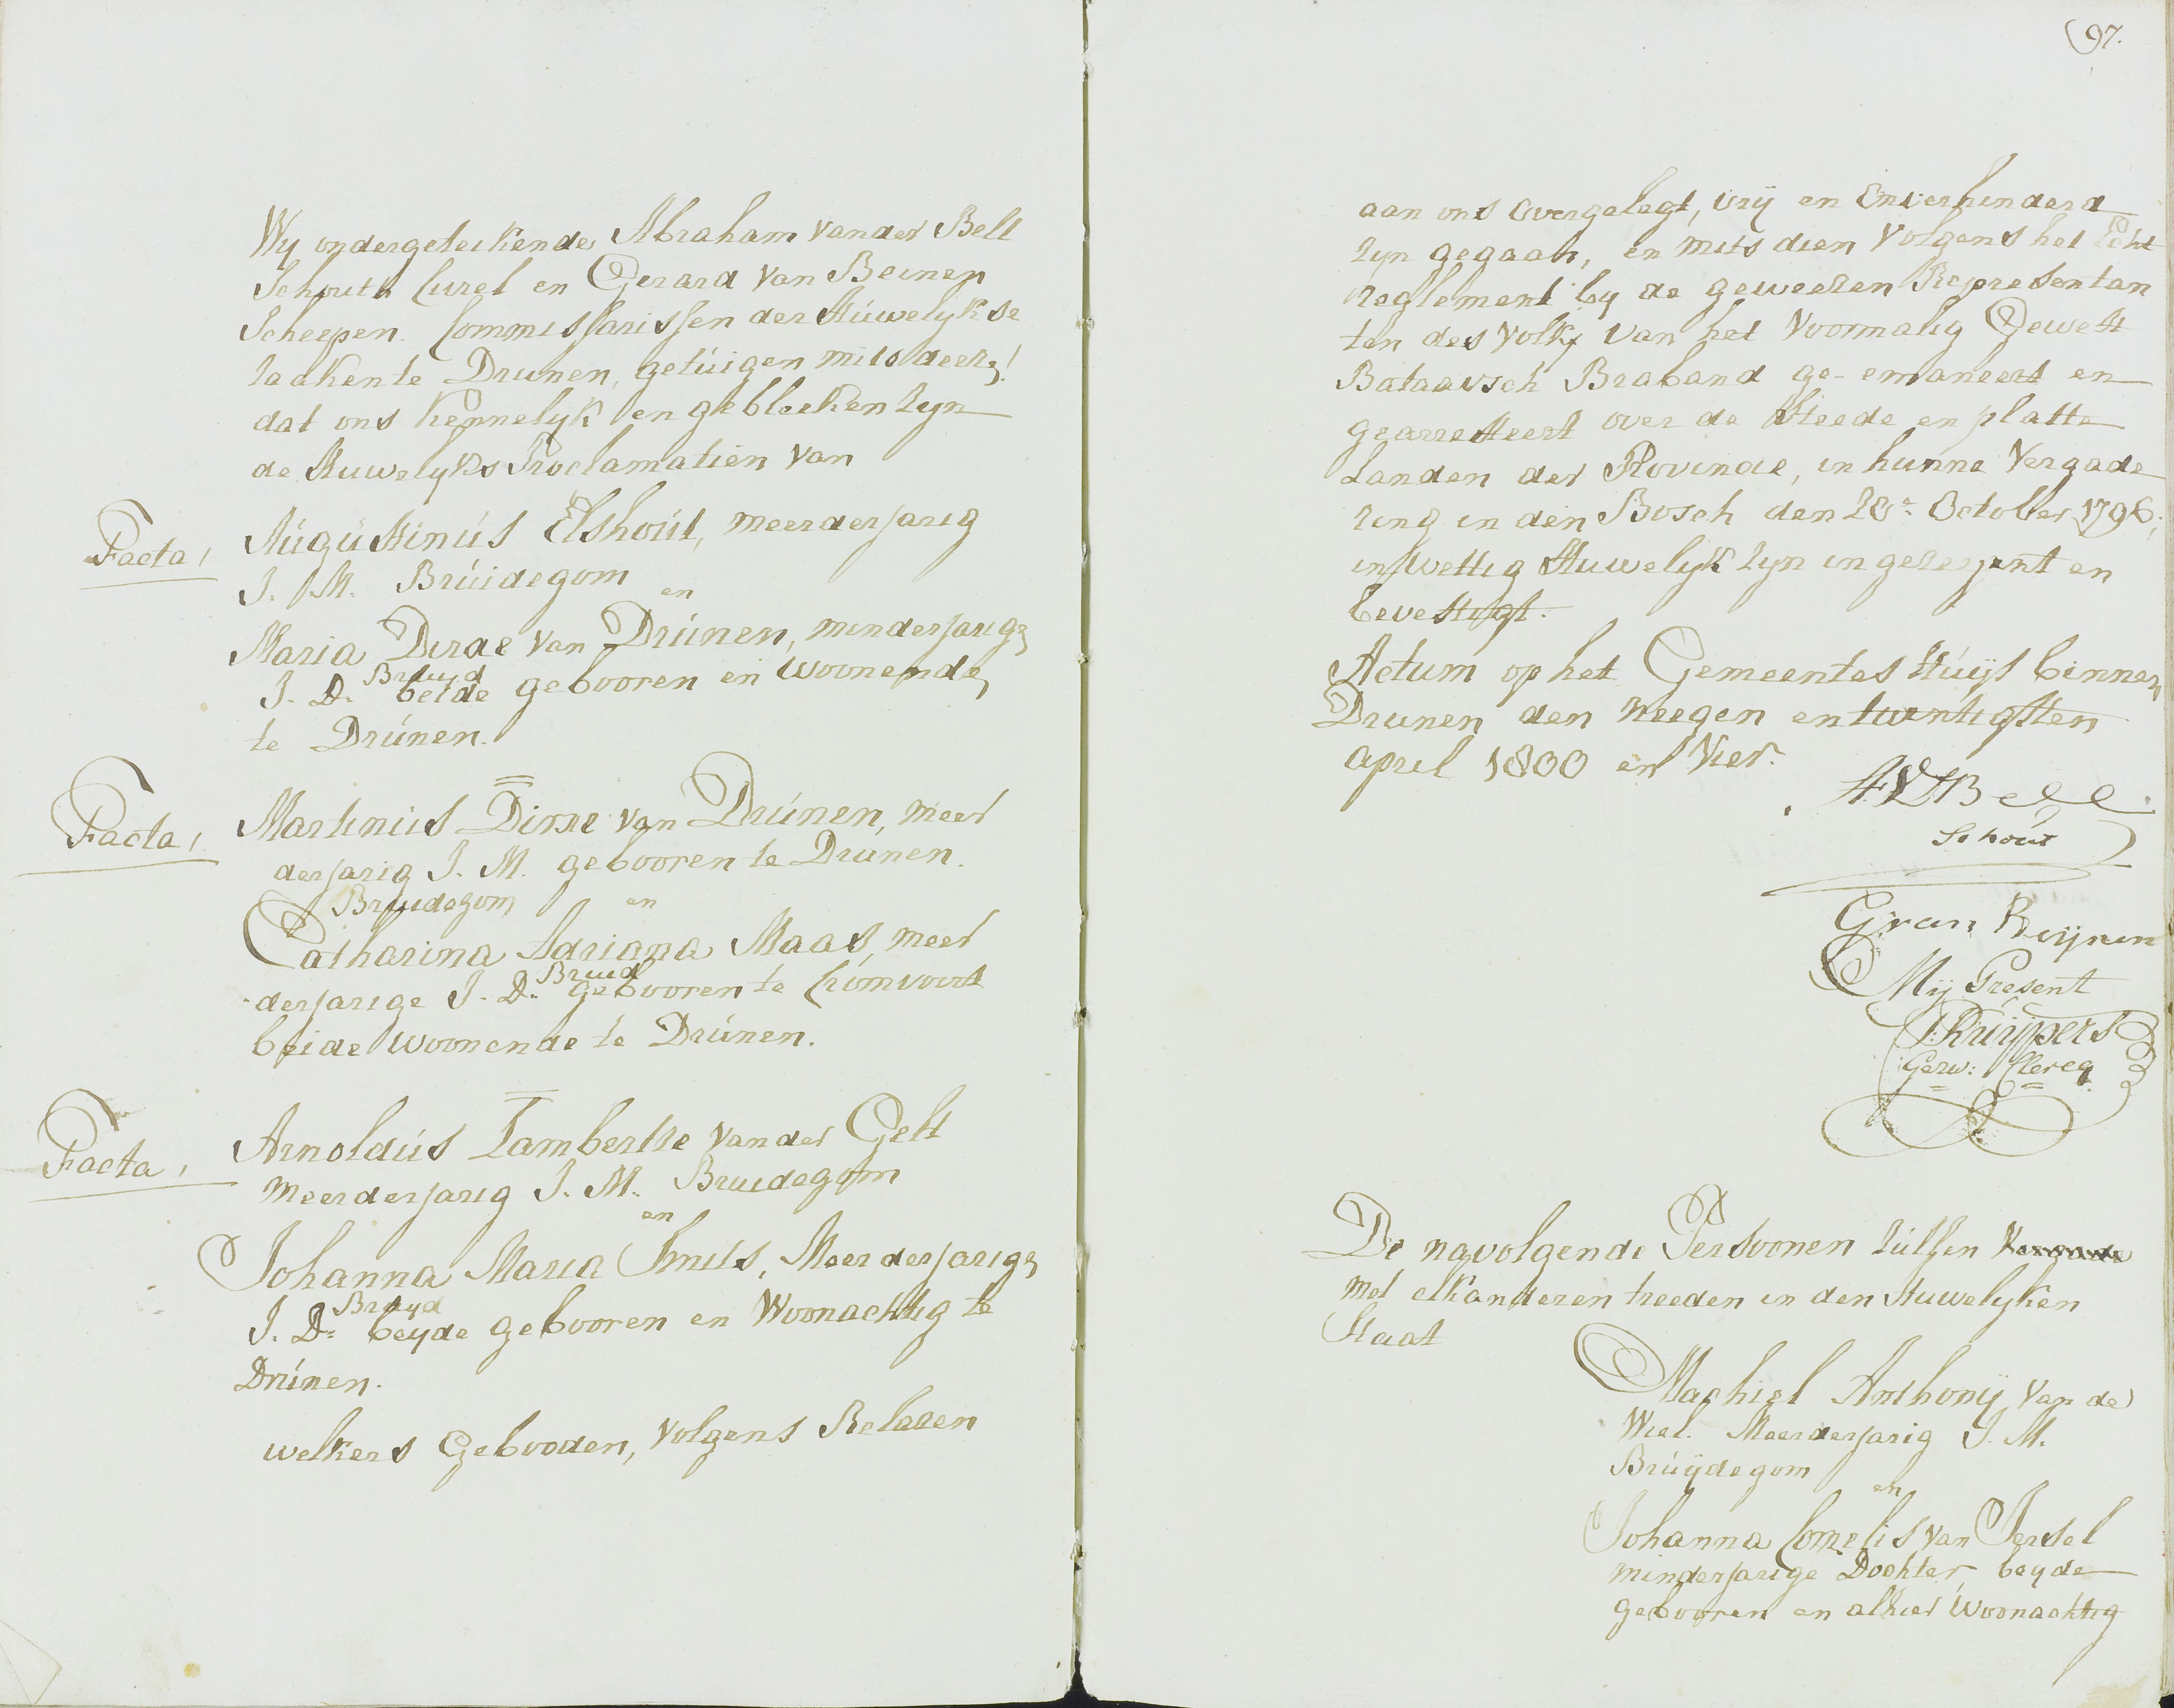 Wy ondergeteikende Abraham vander Bell
Schouth Curel en Gerard van Beinen
Scheepen. Commissarissen der Húwelykse
laaken te Drunen, getúigen mits deez!
dat ons kennelyk en gebleeken zyn
de Huwelyks Proclamatien van
Facta, Aúgústinús Elshoút, meerderjarig
J. M. Brúidegom
en
Maria Dirae van Drúnen, minderjarige
Bruyd
J. D. beide gebooren en woonende,
te Drúnen.
Facta, Martinús Dirse van Drúnen, meer
derjarig J. M. gebooren te Drunen.
Bruidegom en
Catharina Adriana Maas, meer
Bruid
derjarige J. D. gebooren te Cromvoort
beide woonende te Drúnen.
Facta, Arnoldús Lambertse vander Gelt
meerderjarig J. M. Bruidegom
en
Johanna Maria Smits, Meerderjarige
Bruyd
J. D. beyde gebooren en Woonachtig te
Drúnen.
welkers Gebooden, volgens Relaaen
97.
aan ons overgelegt, vrij en onverhinderd
zyn gegaan, en mits dien Volgens het Echt
reglement by de geweezen Representan
ten des Volks van het Voormalig Gewest
Bataavsch Braband ge-emaneert en
gearresteert over de Steede en platte
Landen der Provincie, in hunne Vergade
ring in den Bosch den 28e October 1796;
in Wettig Huwelyk zyn ingezegent en
bevestigt.
Actum op het Gemeentes Húijs binnen
Drunen den neegen en twintigsten
april 1800 en Vier.
AVDBell
Schout
G van Beijnen
Mij Present
Kuijpers
Gezw: Clercq
De navolgende Persoonen zúllen Vergade
met elkanderen treeden in den Huwelyken
Staat
Machiel Anthonij van de
Wiel. Meerderjarig J. M.
Brúijdegom
en
Johanna Cornelis van Iersel
minderjarige Dochter, beyde
gebooren en alhier Woonachtig